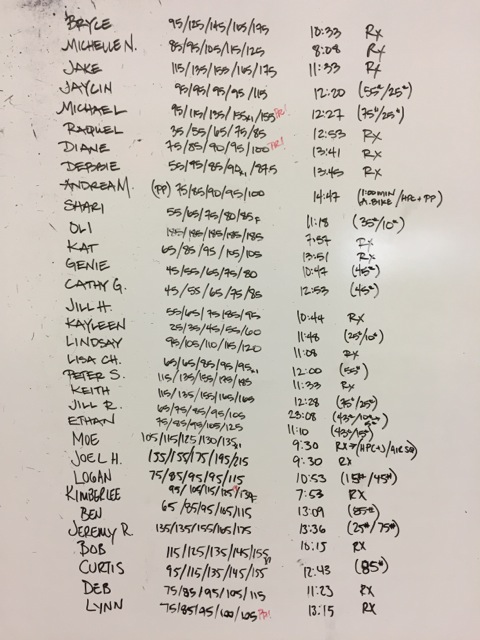 BRYCE 95/125/145/165/175 10:33 RX
MICHELLE N. 85/95/105/115/125 8:08 RX
JAKE 115/135/155/165/175 11:33 RX
JAYLIN 95/95/95/95/115 12:20 (55#/25#)
MICHAEL 95/115/135/155x1/155 PR! 12:27 (75#/25#)
RAQUEL 35/55/65/75/85 12:53 RX
DIANE 75/85/90/95/100 PR! 13:41 RX
DEBBIE 55/95/85/90x1/87.5 13:45 RX
ANDREA M. (PP) 75/85/90/95/100 14:47 (1:00MIN A.BIKE/HPC+PP)
SHARI 55/65/75/80/85F 11:18 (35#/10#)
OLI 185/185/185/185 7:57 RX
KAT 65/85/95/105/105 13:51 RX
GENIE 45/55/65/75/80 10:47 (45#)
CATHY G. 45/55/65/75/85 12:53 (45#)
JILL H. 55/65/75/85/95 10:44 RX
KAYLEEN 25/35/45/55/60 11:48 (25#/10#)
LINDSAY 95/105/110/115/120 11:08 RX
LISA CH. 65/65/85/95/95 12:00 (55#)
PETER S. 115/135/155/175/185 11:33 RX
KEITH 115/135/155/165/165 12:28 (75#/25#)
JILL R. 65/75/85/95/105 23:08
ETHAN 75/85/95/105/125 11:10 (43#/15#)
MOE 105/115/125/130/135 9:30 RX
JOEL H. 135/155/175/195/215 9:30 RX
LOGAN 75/85/95/95/115 10:53 (15#/45#)
KIMBERLEE 95/105/115/125/130F 7:53 RX
BEN 65/85/95/105/115 13:09 (85#)
JEREMY R. 135/135/155/165/175 13:36 (25#/75#)
BOB 115/125/135/145/155 10:15 RX
CURTIS 95/115/135/145/155 12:43 (85#)
DEB 75/85/95/105/115 11:23 RX
LYNN 75/85/95/100/105 PR! 13:15 RX